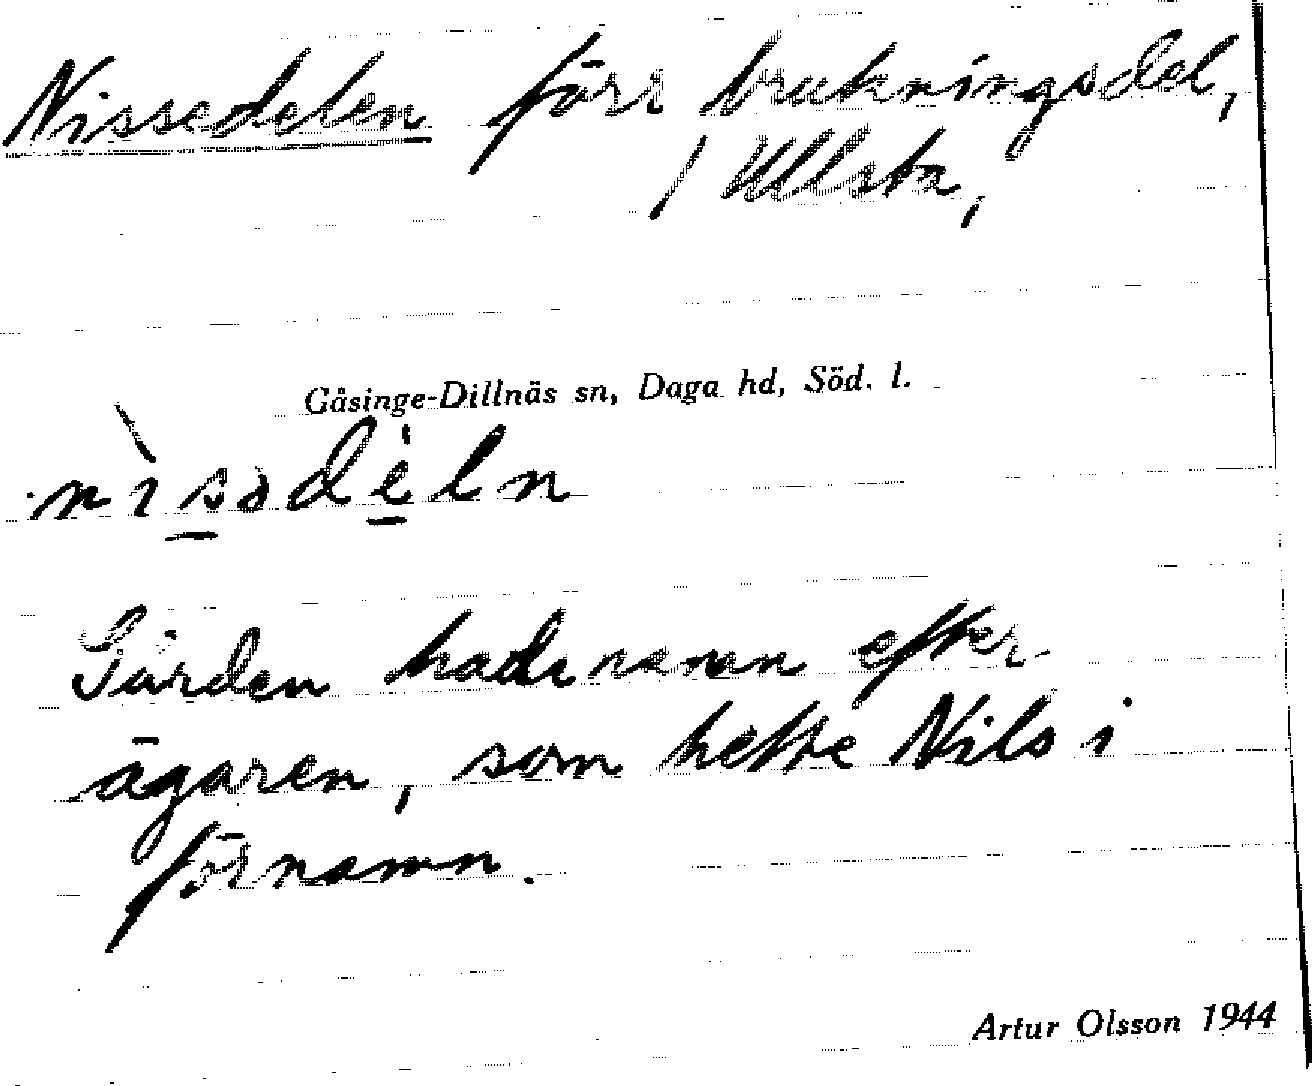 Nissedelen förr brukningsdel,
/ Ullsta,
Gåsinge-Dillnäs sn, Daga hd, Söd. l.
Gården hade namn efter
ägaren, som hette Nils i
förnamn.
Artur Olsson 1944